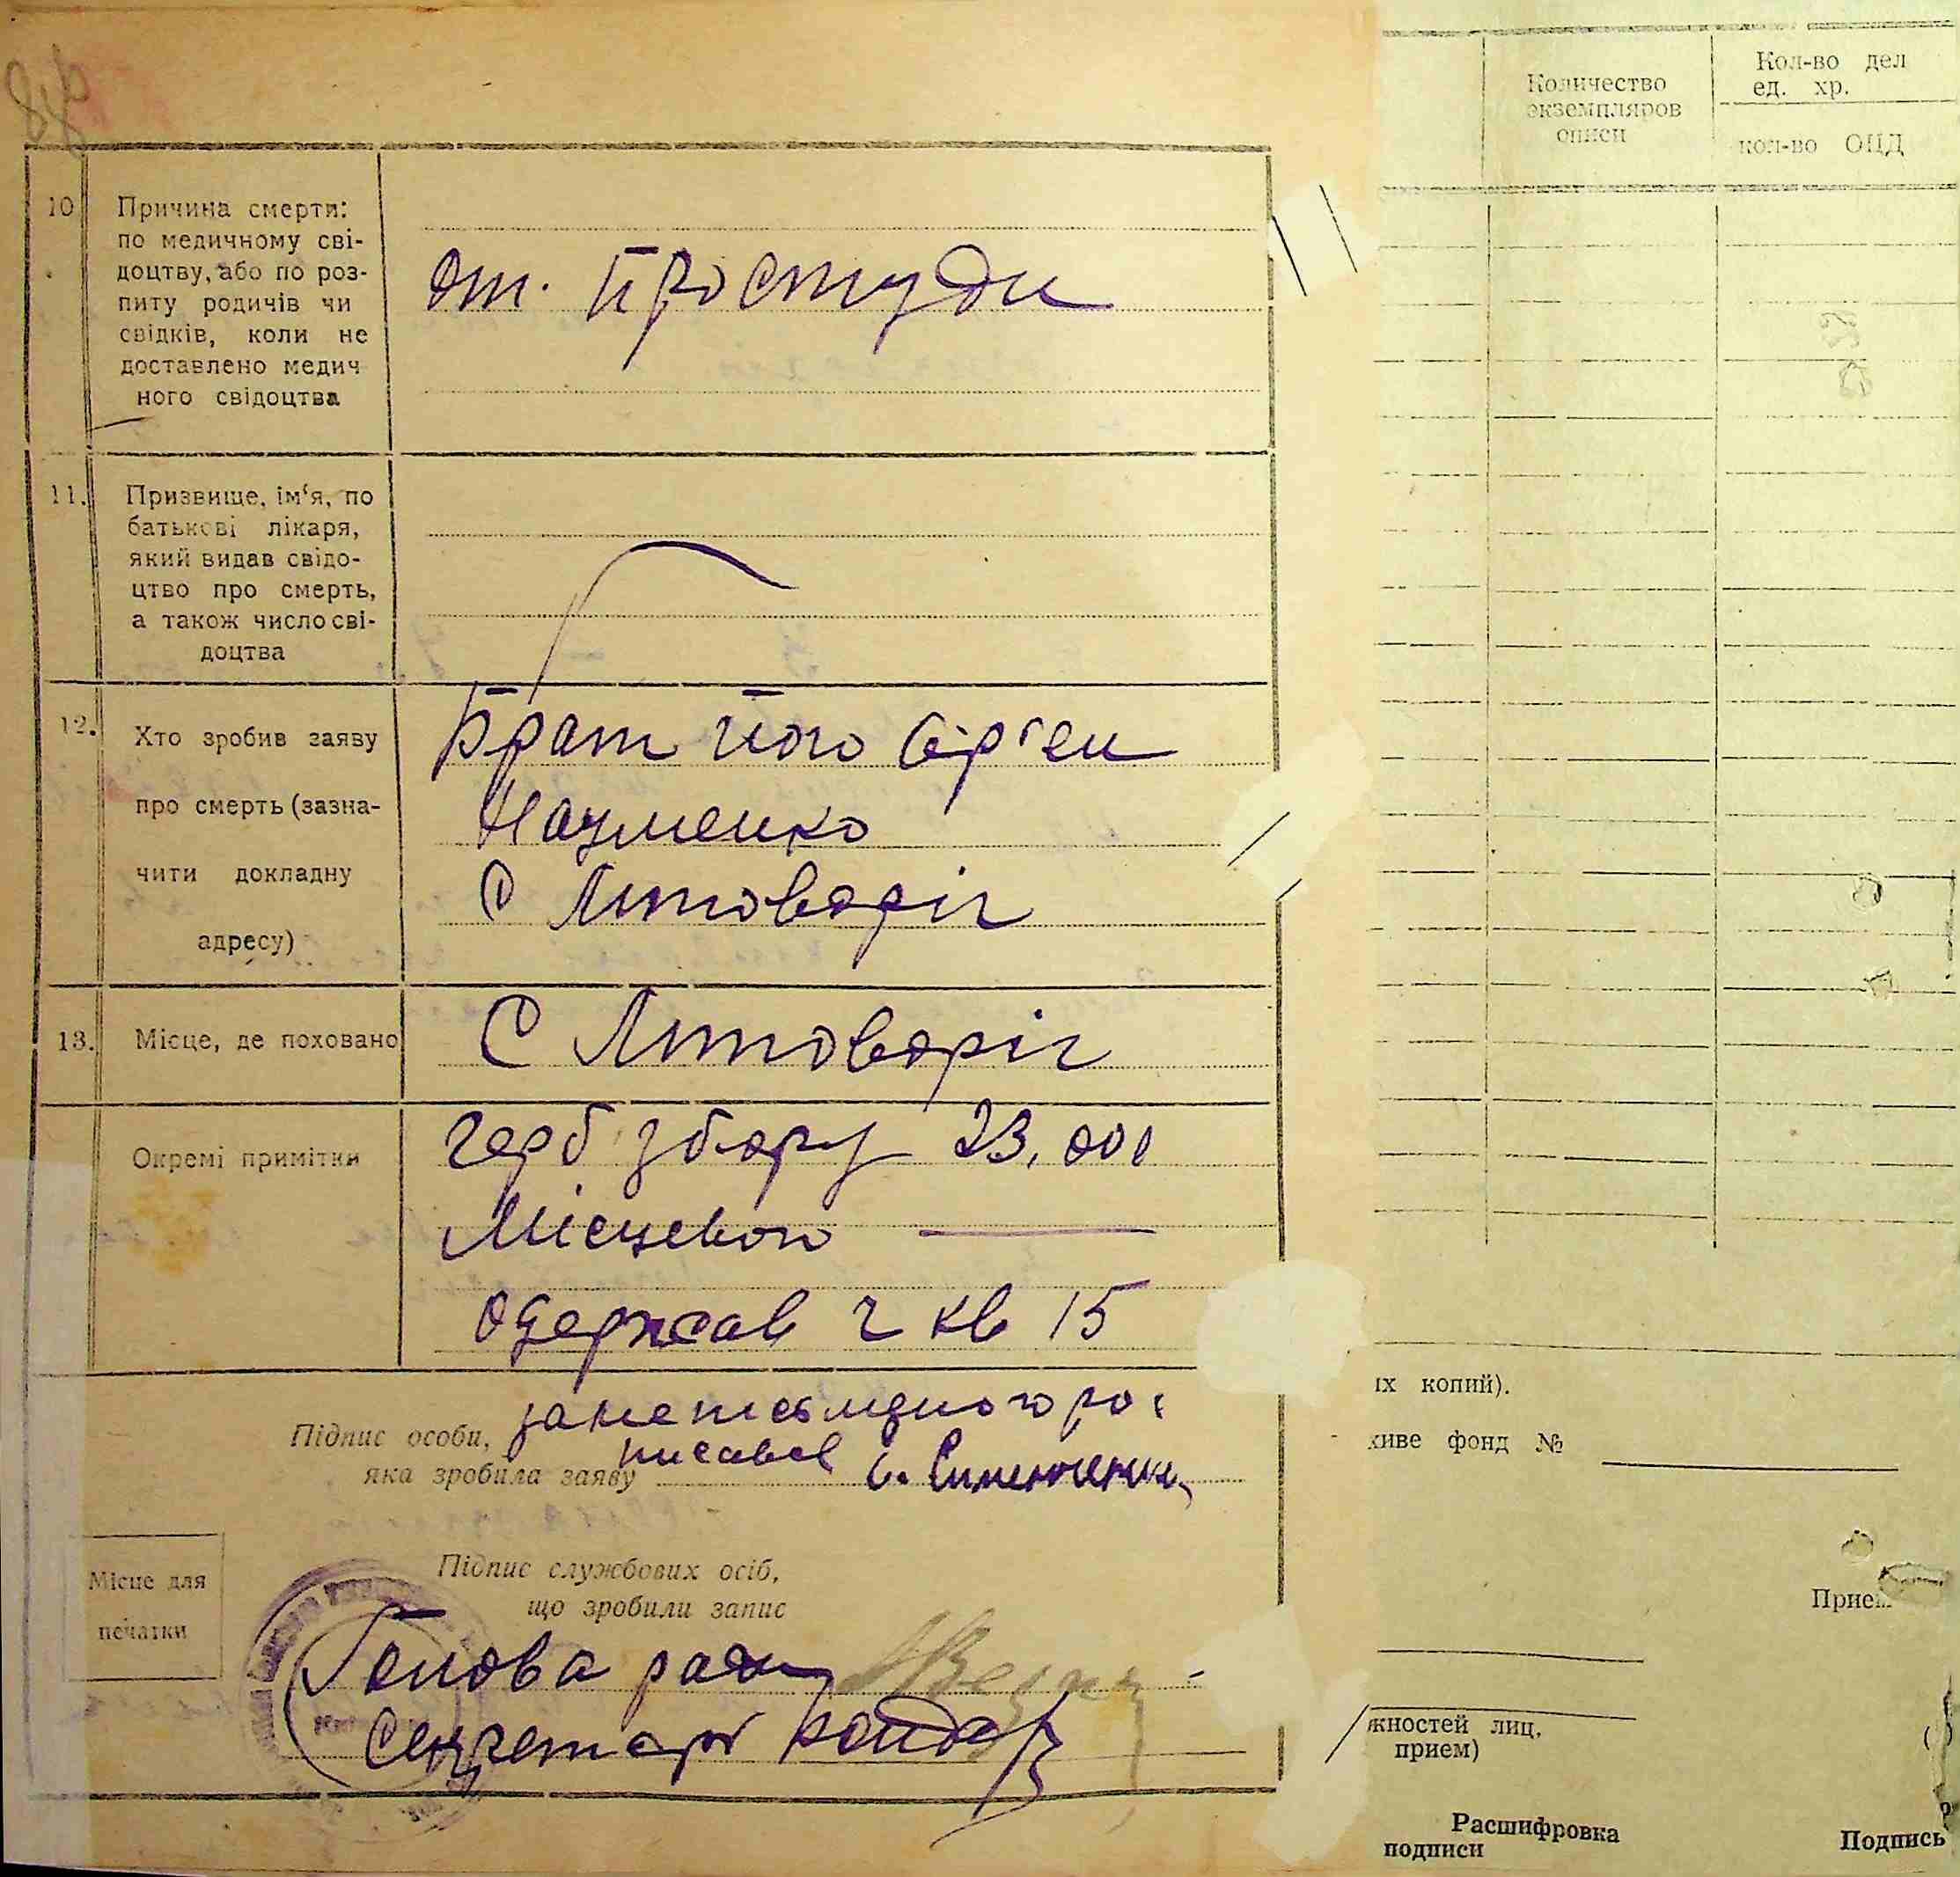 10
Причина смерти:
по медичному сві-
доцтву, або по роз-
питу родичів чи
свідків, коли не
доставлено медич
ного свідоцтва
от. простуди
11.
Призвище, ім'я, по
батькові лікаря,
який видав свідо-
цтво про смерть,
а також число сві-
доцтва
12.
Хто зробив заяву
про смерть (зазна-
чити докладну
адресу)
Брат його
Науменко
С Литоваріг
13.
Місце, де поховано
С Литоваріг
Окремі примітки
герб збору 23,000
Місцевого
Одержав ч кв 15
Підпис особи,
яка зробила заяву
за неписьменого ро
писавсь
Місце для
печатки
Підпис службових осіб,
що зробили запис
Голова ради
Секретарь
Количество
экземпляров
описи
Кол-во дел
ед. хр.
кол-во ОЦД
іх копий).
хиве фонд №
Прием
жностей лиц,
прием)
Расшифровка
подписи
Подпись